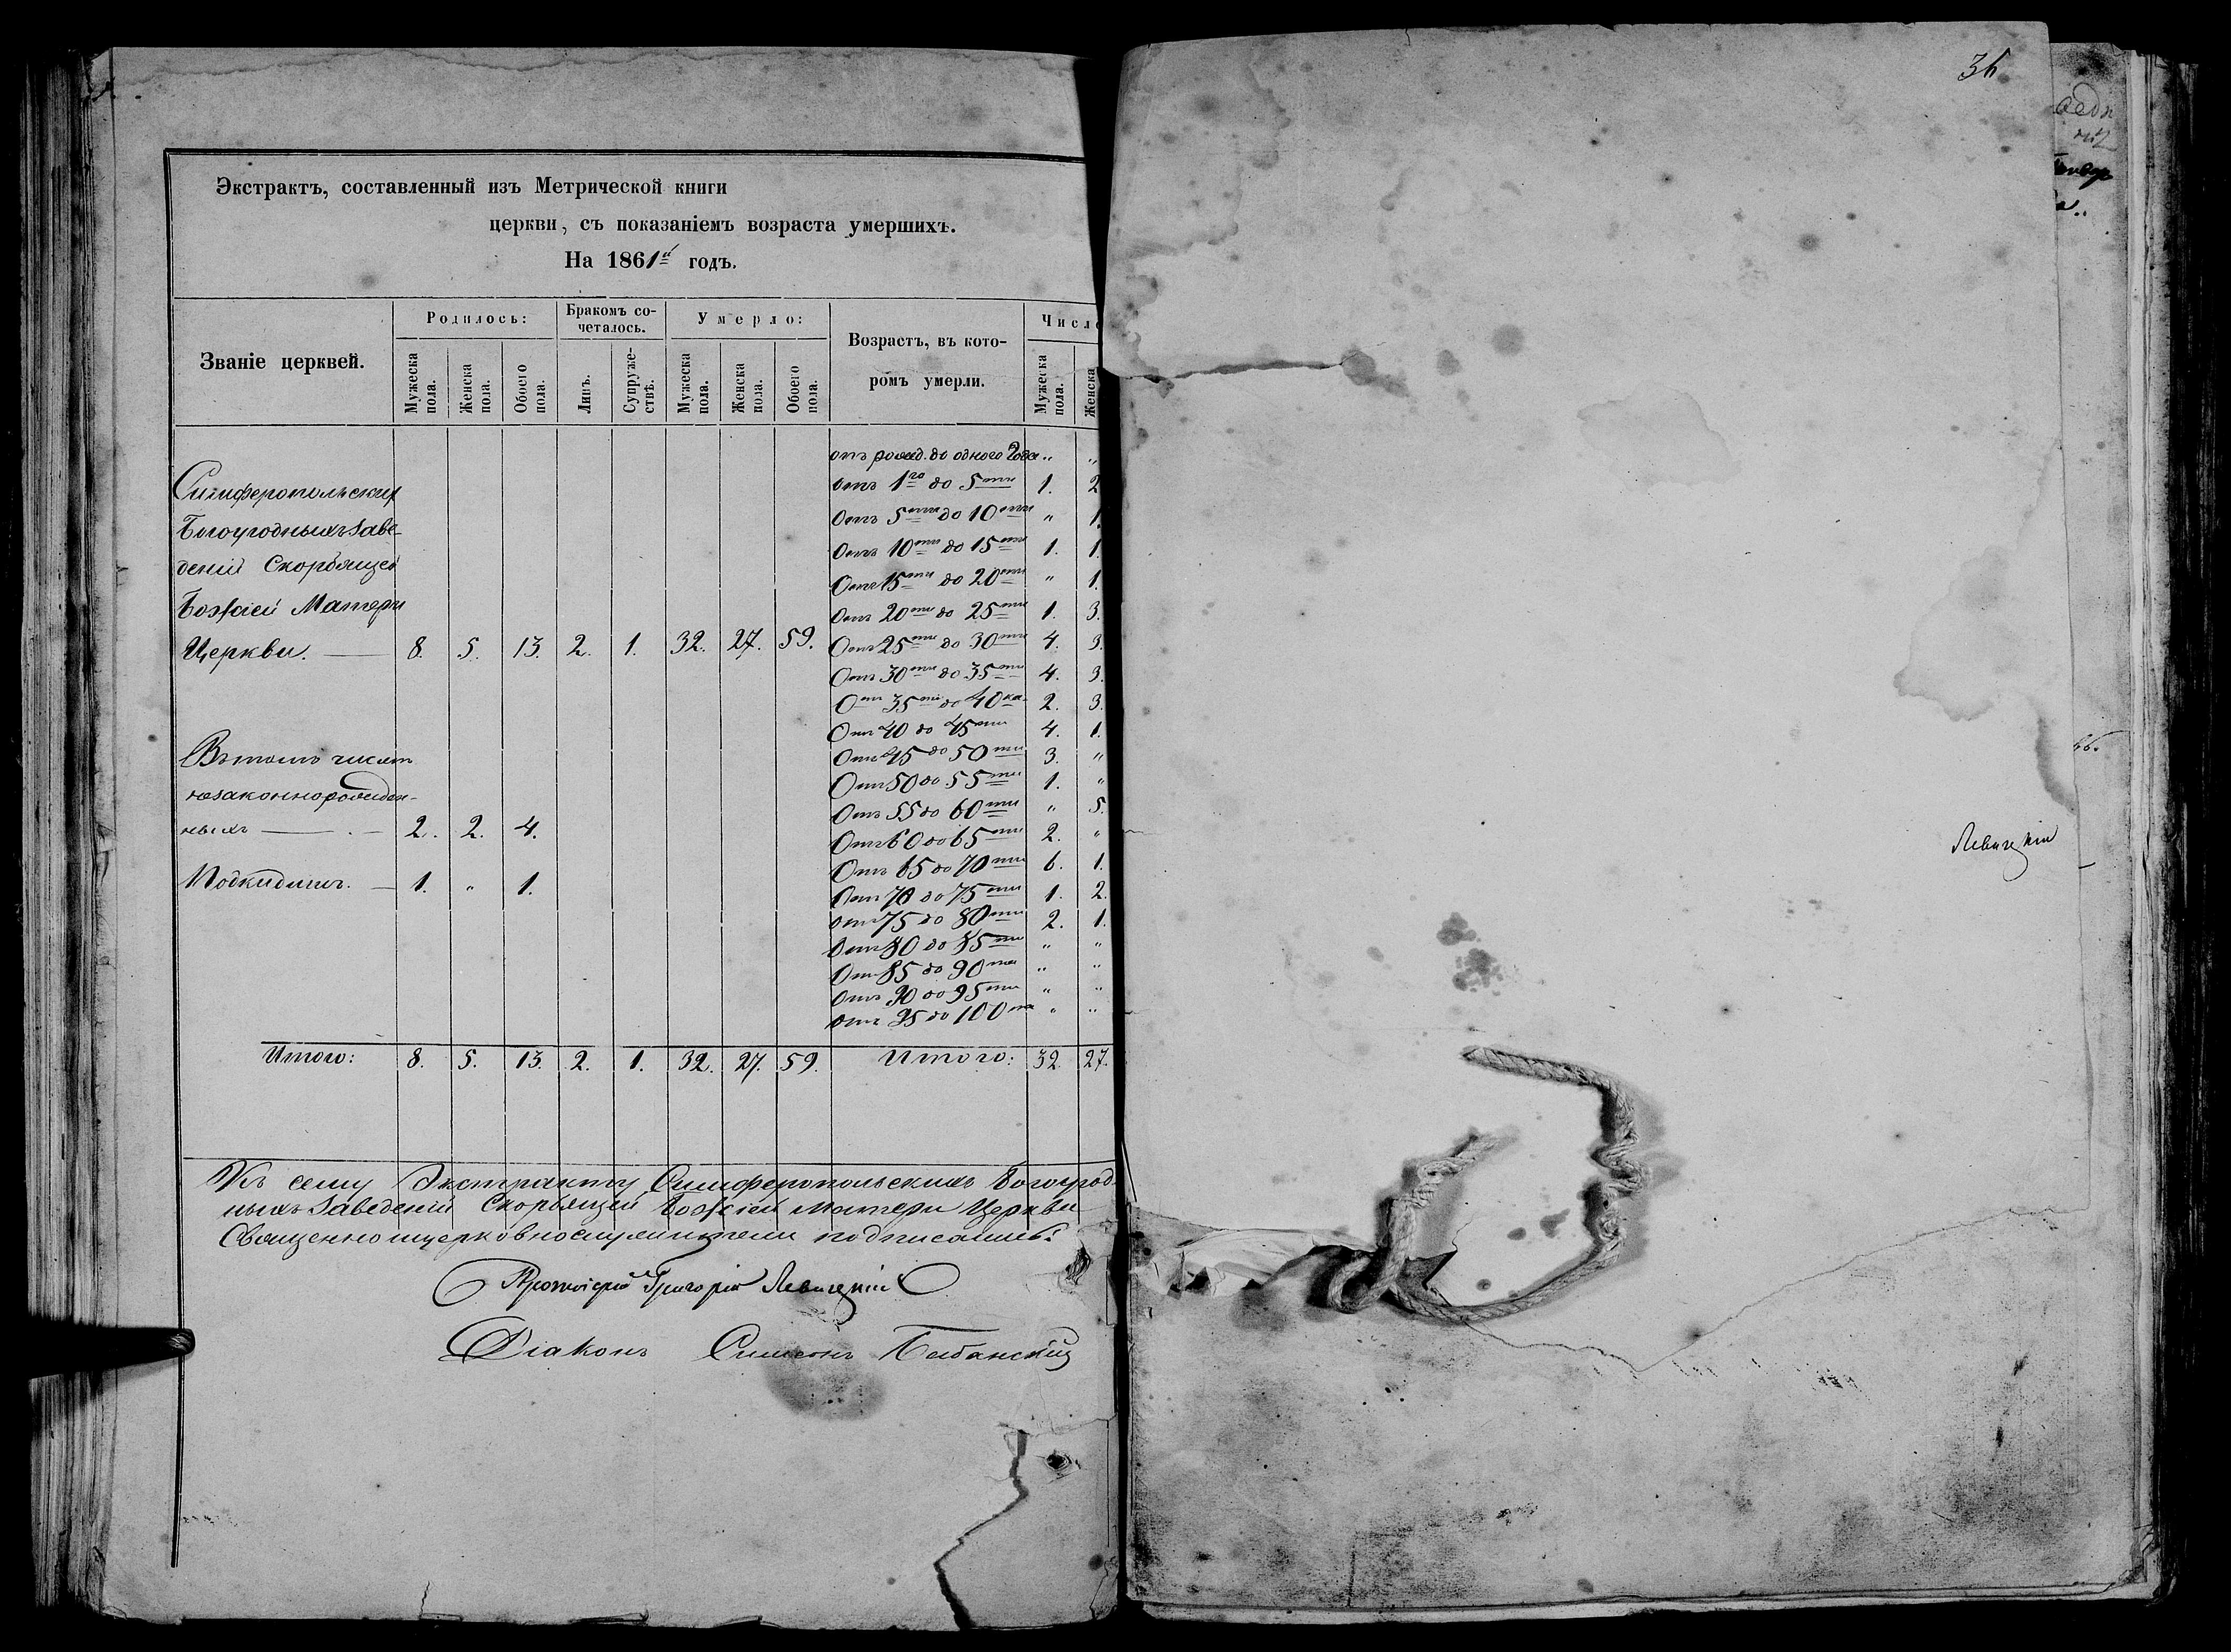 Экстрактъ, составленный изъ Метрической книги
церкви, съ показаніемъ возраста умершихъ.
На 1861й годъ.
Званіе церквей.
Родилось:
Мужеска пола.
Женска пола.
Обоего пола.
Бракомъ сочеталось.
Лицъ.
Супружествъ.
Умерло:
Мужеска пола.
Женска пола.
Обоего пола.
Возрастъ, въ которомъ умерли.
Число
Мужеска пола.
Женска
Симферопольскихъ
Богоугодныхъ Заве-
деній Скорбящей
Божіей Матери
Церкви. 8. 5. 13. 2. 1. 32. 27. 59.
Въ томъ числѣ
незаконнорожден-
ныхъ 2. 2. 4.
Подкидыш. 1. " 1.
отъ рожд. до одного года " "
отъ 1го до 5ти 1. 2
Отъ 5ти до 10ти " 1.
Отъ 10ти до 15ти 1. 1.
Отъ 15ти до 20ти " 1.
Отъ 20ти до 25ти 1. 3.
Отъ 25ти до 30ти 4. 3.
Отъ 30ти до 35ти 4. 3.
Отъ 35ти до 40ка 2. 3.
Отъ 40 до 45ти 4. 1.
Отъ 45 до 50ти 3. "
Отъ 50 до 55ти 1. "
Отъ 55 до 60ти " 5.
Отъ 60 до 65ти 2. "
Отъ 65 до 70ти 6. 1.
Отъ 70 до 75ти 1. 2.
Отъ 75 до 80ти 2. 1.
Отъ 80 до 85ти " "
Отъ 85 до 90та " "
Отъ 90 до 95ти " "
Отъ 95 до 100та " "
Итого: 8. 5. 13. 2. 1. 32. 27. 59. Итого: 32. 27.
Къ сему Экстракту Симферопольскихъ Богоугод
ныхъ Заведеній Скорбящей Божіей Матери Церкви
Священноцерковнослужители подписались:
Протоіерей Григорій Левицкій
Діаконъ Симеонъ
36
Левицкій